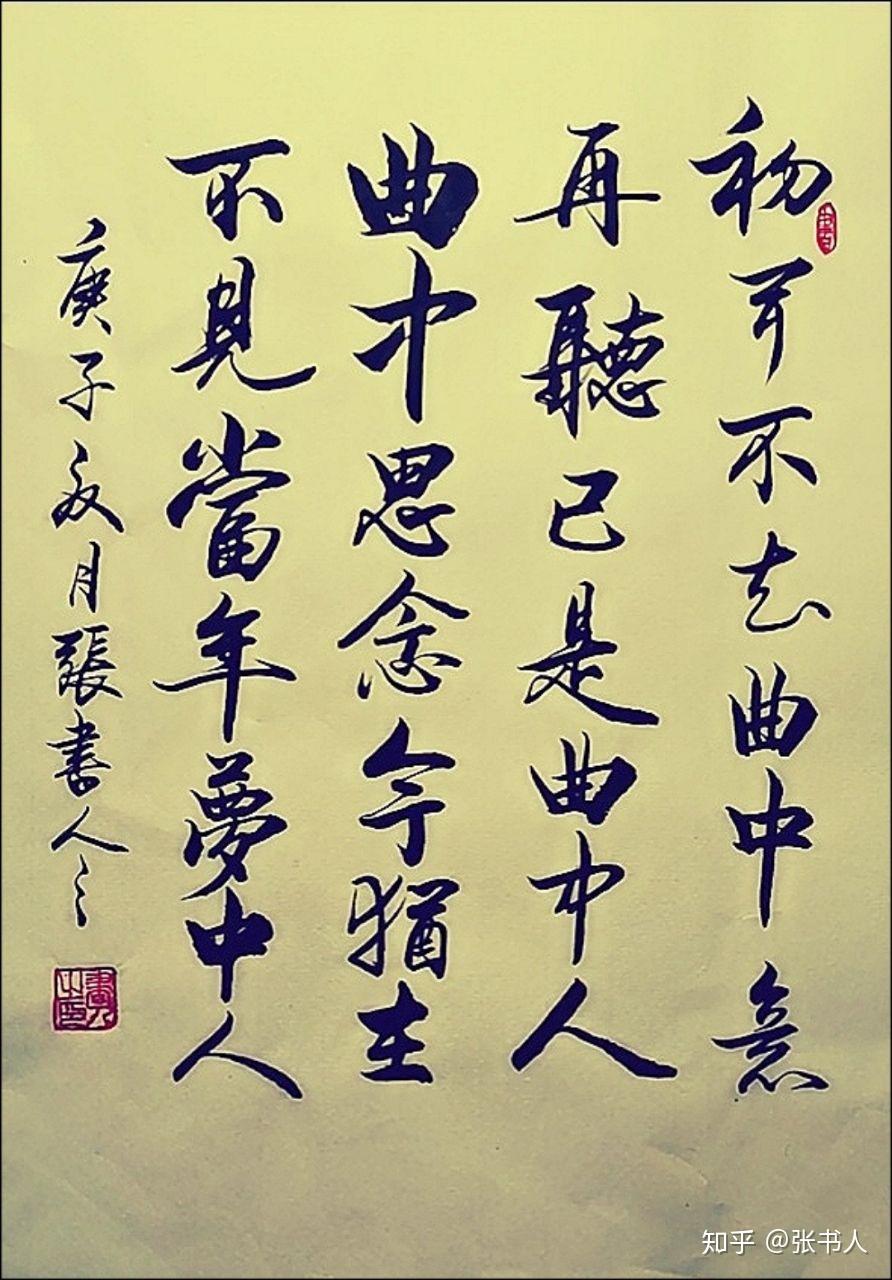 初聞不知曲中意
再聽已是曲中人
曲中思念今猶在
不見當年夢中人
庚子夏月張書人
書人之印
知乎 @张书人